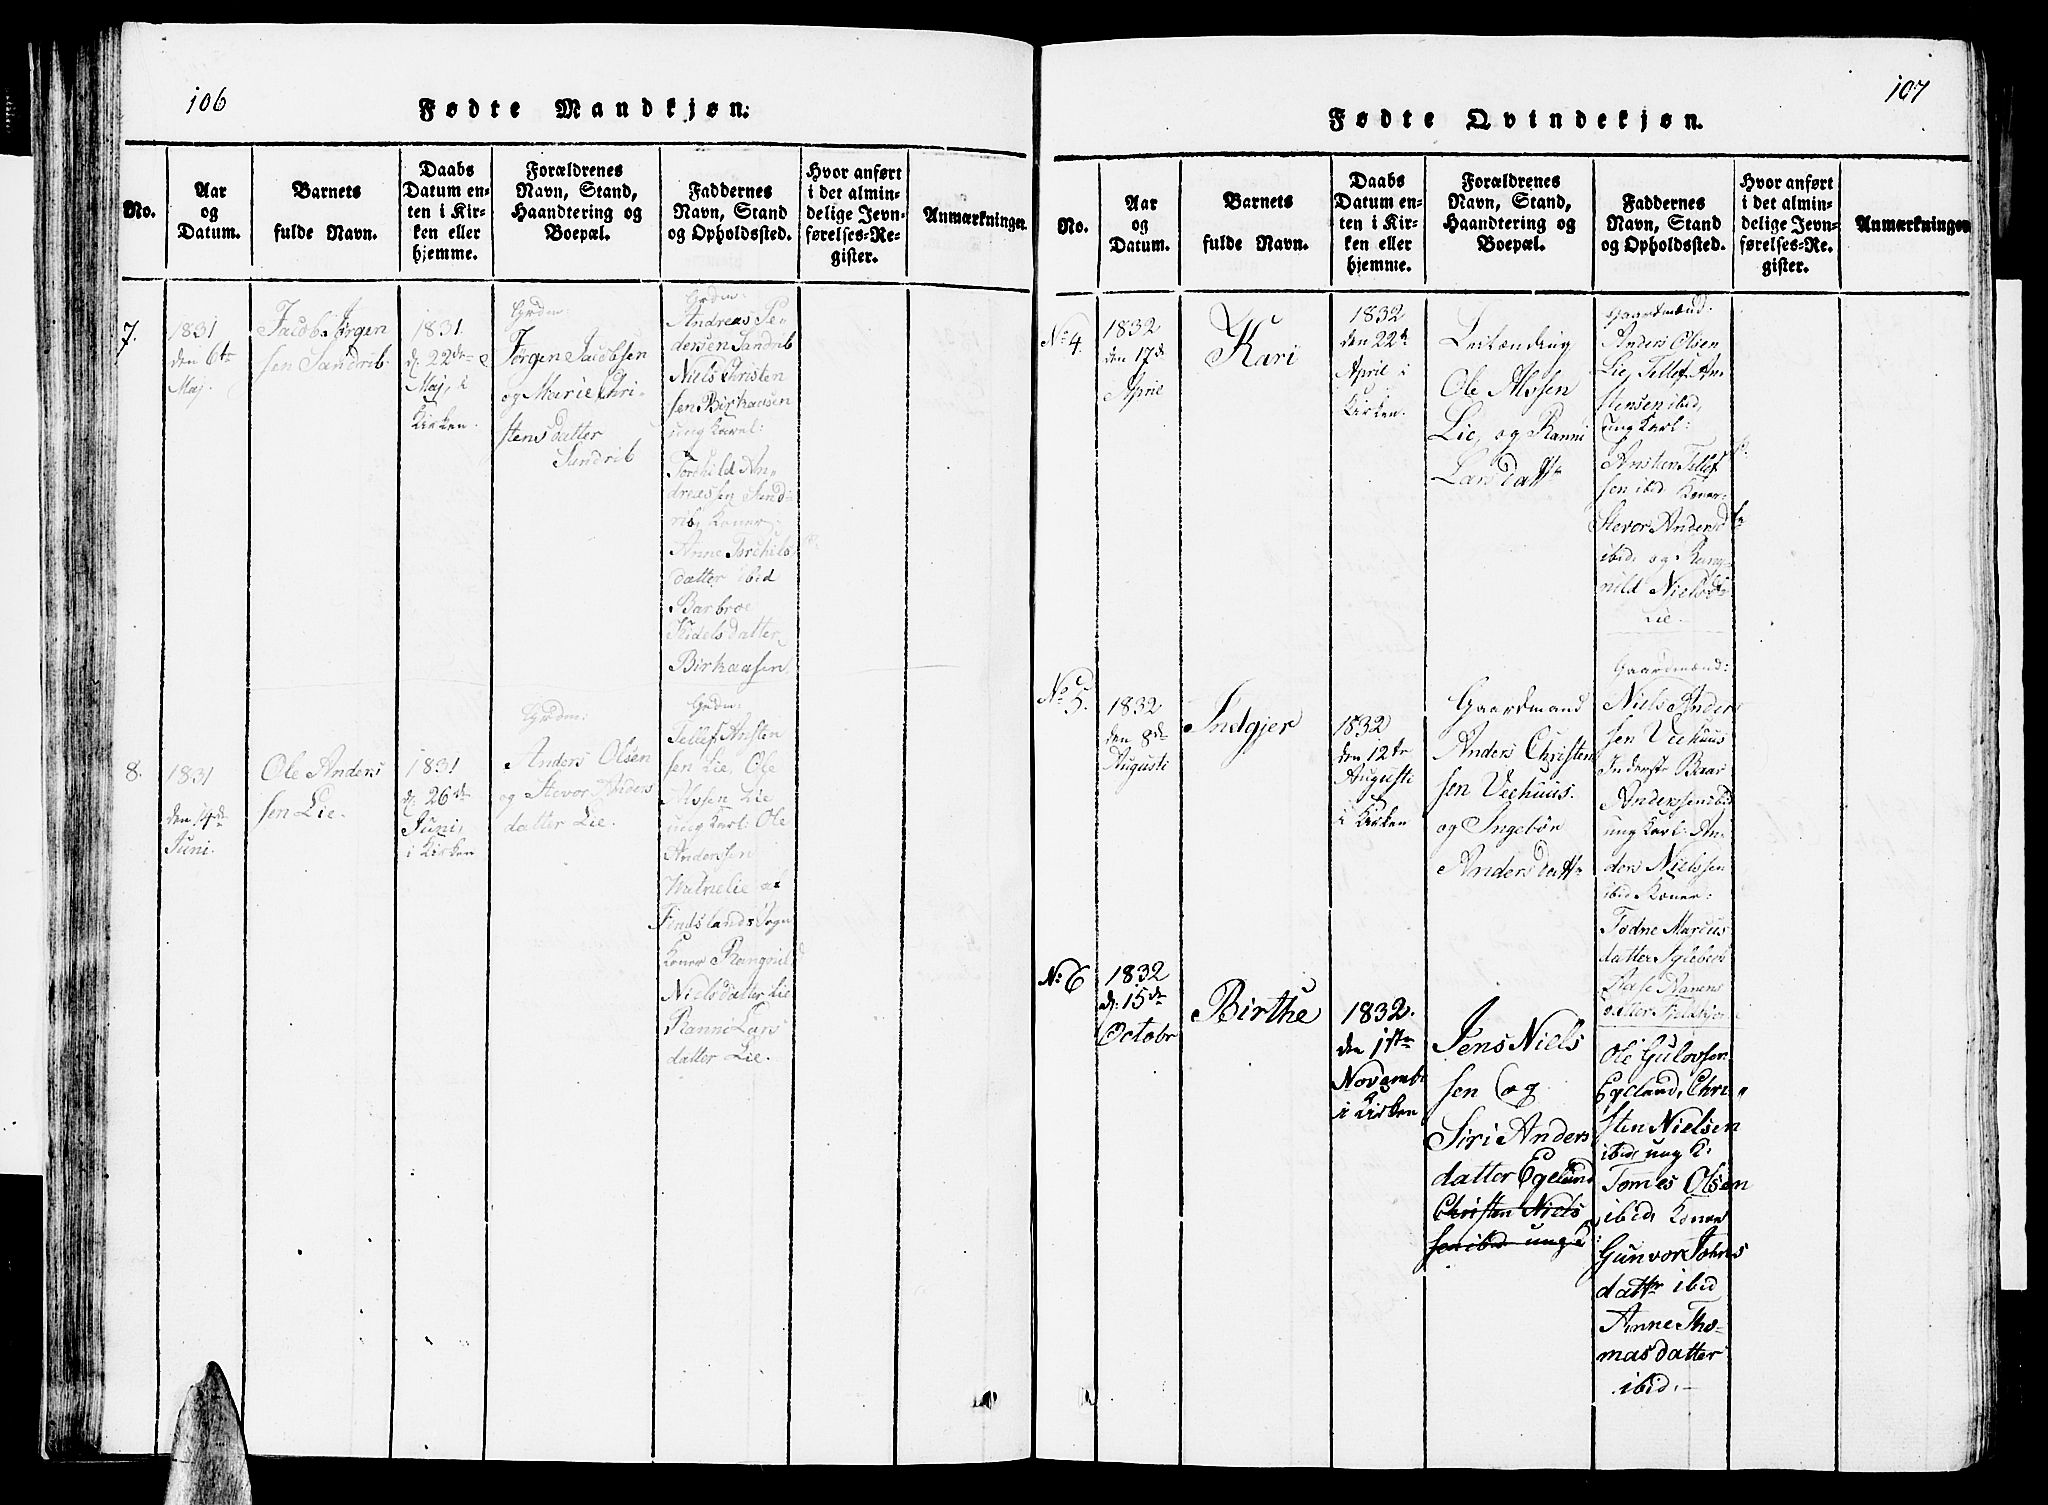 106
Fødte Mandkjøn:
No.
Aar
og
Datum.
Barnets
fulde Navn.
Daabs
Datum en-
ten i Kir-
ken eller
hjemme.
Forældrenes
Navn, Stand,
Haandtering og
Boepæl.
Faddernes
Navn, Stand
og Opholdssted.
Hvor anført
i det almin-
delige Jevn-
førelses-Re-
gister.
Anmærkninger.
7.
1831
den 6te
Maj.
Jacob Jørgen
sen Sandrib
1831.
d. 22de
Maj, i
Kirken.
Grdm:
Jørgen Jacobsen
og Marie Chri-
stensdatter
Sandrib
Grdm:
Andreas Pe-
dersen Sandrib
Niels Christen
sen Birkaasen
ung Karl:
Torkild An-
dreassen Sand-
rib, Koner:
Anne Torkils
datter ibid
Barbroe
Keidelsdatter
Birkaasen
8.
1831
den 14de
Juni.
Ole Anders
sen Lie.
1831
d. 26de
Juni,
i Kirken
Grdm:
Anders Olsen
og Stevor Anders
datter Lie.
Grdm:
Tellef Ansten
sen Lie, Ole
Alvsen Lie
ung Karl: Ole
Anderssen
Watnelie af
Findslands Sogn
Koner Rangnild
Nielsdatter Lie
Ranni Lars
datter Lie.
107
Fødte Qvindekjøn.
No.
Aar
og
Datum.
Barnets
fulde Navn.
Daabs
Datum en-
ten i Kir-
ken eller
hjemme.
Forældrenes
Navn, Stand,
Haandtering og
Boepæl.
Faddernes
Navn, Stand
og Opholdssted.
Hvor anført
i det almin-
delige Jevn-
førelses-Re-
gister.
Anmærkninger
No 4.
1832
den 17de
April
Kari
1832
den 22de
April i
Kirken.
Leilænding
Ole Alvsen
Lie, og Ranni
Larsdattr
Gaardmænd:
Anders Olsen
Lie, Tellef An
stensen ibid,
ung Karl:
Ansten Tellef
sen ibid Koner:
Stevor Andersd
ibid. og Rang-
nild Nielsd
Lie.
No 5.
1832
den 8de
Augusti
Indgjer
1832
den 12te
Augusti
i Kirken
Gaardmand
Anders Christen
sen Veehuus.
og Ingebor
Andersdattr
Gaardmænd:
Niels Anders
sen Veehuus
Anderssen ibid
ung Karl: An-
ders Nielssen
ibid Koner:
Todne Marcus
datter
Aase
datter
No 6
1832
d. 15de
Octobr
Birthe
1832.
den 1ste
Novembr
i Kirken
Jens Niels
sen og
Siri Anders
datter Egeland
Christen Niels
sen ibid ung K
Ole Gulovsen
Egeland, Chri
sten Nielsen
ibid, ung K:
Tomes Olsen
ibid Koner
Gunvor Johns
dattr ibid
Anne Tho-
masdatter
ibid.